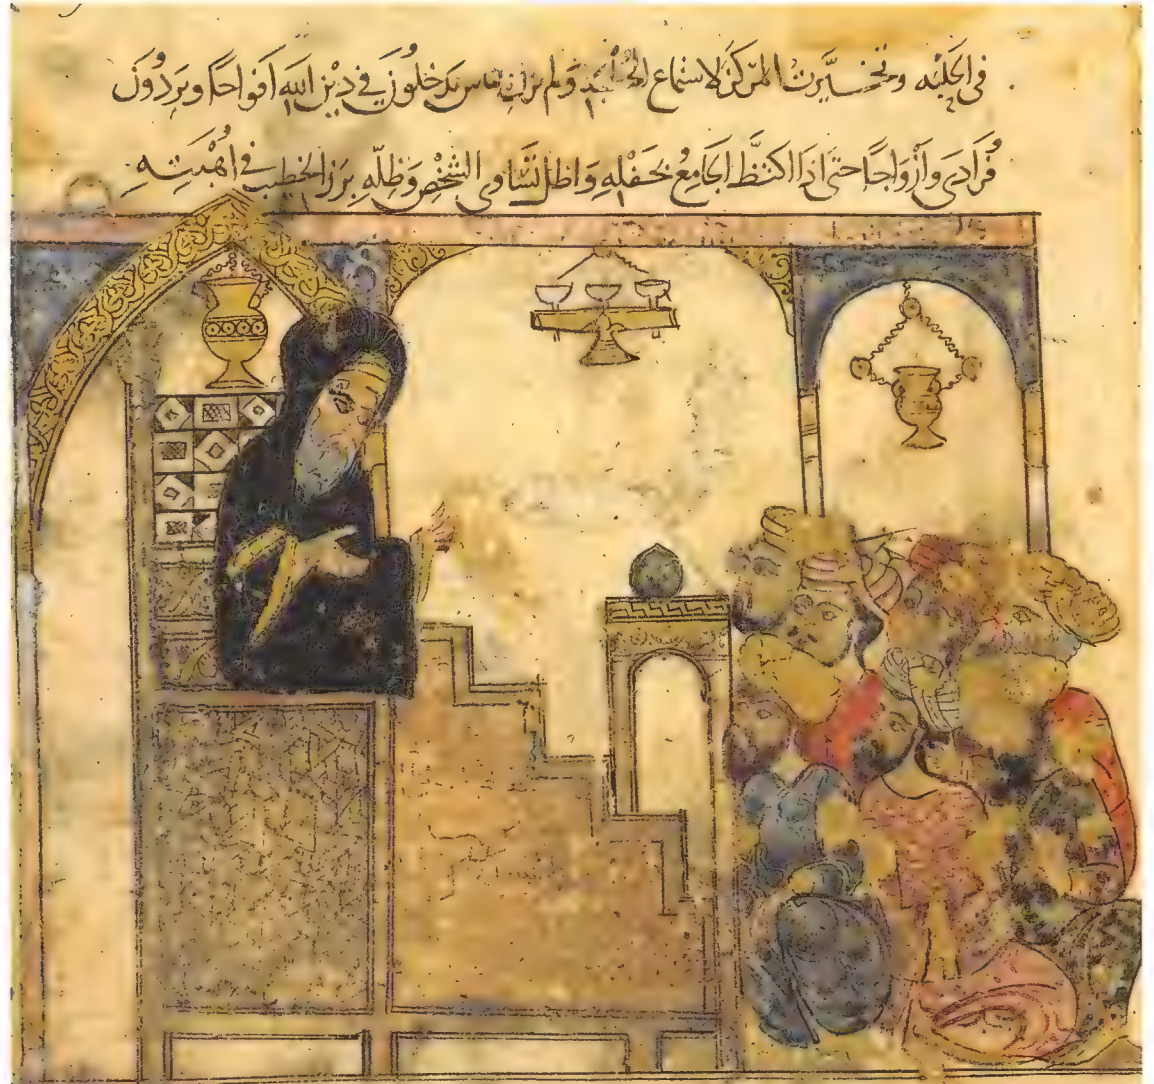 في الحَلْبه وتخيَّرتُ المركزَ لاستماع الخطبه وَلم يزل الناس يدخلُونَ في دِيْنِ اللهِ اَفواجًا ويَرِدُونَ
فُرَادَى وَاَزْوَاجًا حتى اِذَا اكتظَّ الجَامعُ بحَفْلِهِ وَاظل تَسَاوى الشخْصِ وَظِلّهِ بَرَزَ الخطيب في اُهْبَتِهِ